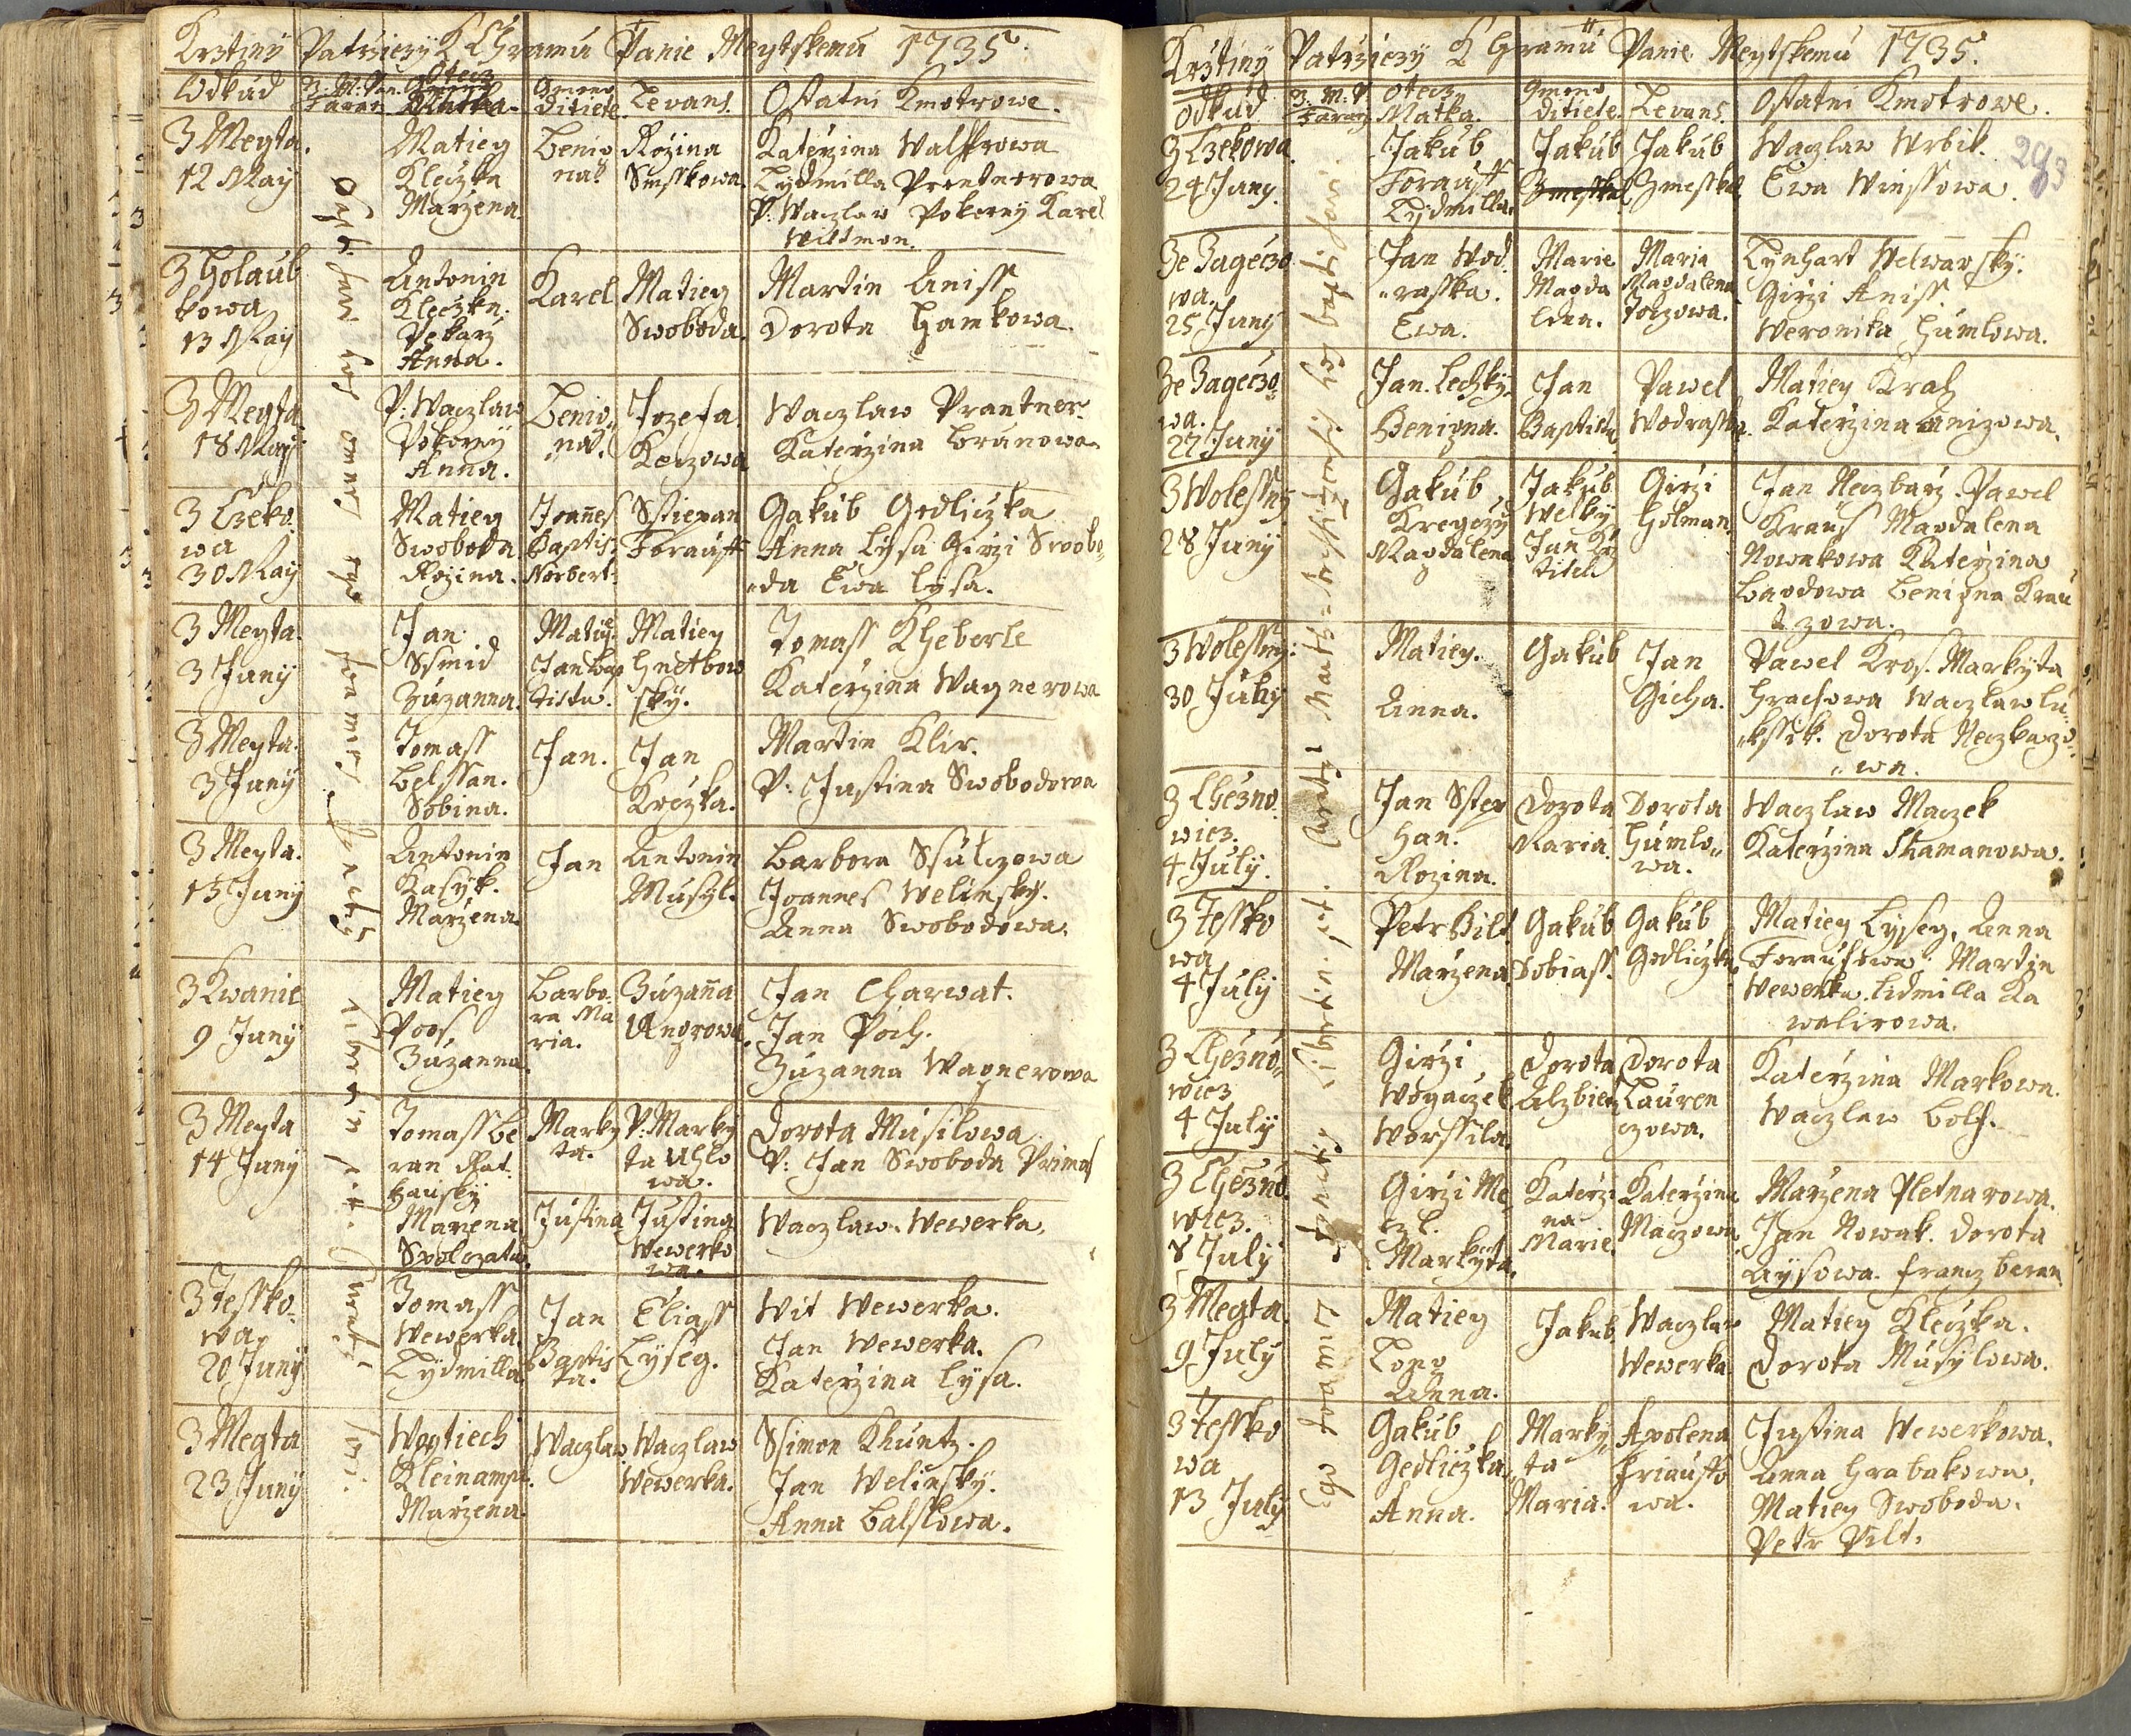 Krztiny Patrziczy K Chramu Panie Meytskemu 1735.
Odkud
Otecz
Matka.
Gmeno
Ditiete.
Levans.
Ostatni Kmotrowe.
Z Meyta.
12 May
Matieg
Kleczka
Marzena.
Benig
na.
Rozina
Smsskowa.
Katerzina
Lydmilla Prentnerowa
P. Waczlaw Pokorny Karel
Z Holaub
kowa
13 May
Antonin
Kleczka.
Pekarz
Anna.
Karel
Matieg
Swoboda.
Martin Aniss
Dorota Hamkowa.
Z Meyta
18 May
P: Waczlaw
Pokorny
Anna.
Benig
na.
Jozefa
Waczlaw Prantner.
Katerzina Brunowa
Z Czeko
wa
30 May
Matieg
Swoboda
Rozina.
Joannes
Baptis.
Norbert.
Sstiepan
Foraust
Gakub Gedliczka
Anna Lysa Girzi Swobo
da Ewa Lysa.
Z Meyta.
3 Juny
Jan
Ssmid
Zuzanna.
Matieg
Jan Bap
tista.
Matieg
Hnetkow
sky.
Tomass Kheberle
Katerzina Wagnerowa
Z Meyta.
3 Juny
Tomass
Belssan.
Sobina.
Jan.
Jan
Kreczka.
Martin Klir.
P: Justina Swobodowa
Z Meyta.
15 Juny
Antonin
Kasyk.
Marzena
Jan
Antonin
Musyl.
Barbora Ssulczowa
Joannes Welinsky.
Anna Swobodowa.
Z Kwanie
9 Juny
Matieg
Poos
Zuzanna.
Barbo
ra Ma
ria.
Zuzanna
Ungrowa.
Jan Charwat.
Jan Poch.
Zuzanna Wagnerowa
Z Meyta
14 Juny
Tomass Be
ran Rat
hausky
Marzena
Marky
ta.
P: Marky
ta Uhlo
wa.
Dorota Musilowa
P: Jan Swoboda Primas
Justina
Justina
Wewerko
wa.
Waczlaw Wewerka.
Z Tessko
wa
20 Juny
Tomass
Wewerka.
Lydmilla
Jan
Baptis
ta.
Eliass
Lyseg.
Wit Wewerka.
Jan Wewerka.
Katerzina Lysa.
Z Meyta
23 Juny
Wogtiech
Marzena.
Waczlaw.
Waczlaw
Wewerka.
Ssimon Khuntz.
Jan Welinsky.
Anna Balskowa.
Krztiny Patrziczy K Hramu Panie Meytskemu 1735.
Odkud
Z. M. P.
Fararz
Otecz
Matka.
Gmeno
Ditiete.
Levans.
Ostatni Kmotrowe.
293
Z Czekowa
24 Juny.
Jakub
Foraust
Lydmilla.
Jakub
Zmeskal
Jakub
Zmeskal
Waczlaw Wrbik.
Ewa Winssowa.
Ze Zageczo
wa.
25 Juny
Jan Wod
rasska.
Ewa.
Marie
Magda
lena.
Maria
Magdalena
Lynhart Welwarsky.
Girzi Aniss.
Weronika Humlowa.
Ze Zageczo
wa.
27 Juny
Jan Lechky.
Benigna.
Jan
Baptista
Pawel
Wodraska.
Matieg Kral
Katerzina Anizowa.
Z Wolessny
28 Juny
Gakub
Kregczy
Magdalena
Jakub
Welky
Jan Krz
titel.
Girzi
Holman.
Jan Neczbarz. Pawel
Kraus Magdalena
Nowakowa Katerzina
Bagdowa Benigna Krau
zowa.
Z Wolessny:
30 July
Matieg.
Anna.
Gakub
Jan
Gicha.
Pawel Kros. Markyta
Hrachowa Waczlaw Lu
kssik. Dorota Neczbarzo
wa.
Z Chezno
wicz.
4 July.
Jan Sstep
han.
Rozina.
Dorota
Maria.
Dorota
Humlo
wa.
Waczlaw Maczek
Katerzina Shamanowa.
Z Tessko
wa
4 July
Petr Bilt
Marzena
Gakub
Tobiass.
Gakub
Gedliczka.
Matieg Lyseg, Anna
Foraustowa. Martin
Wewerka. Lidmilla Ka
walirowa.
Z Chezno
wicz
4 July
Girzi
Wogaczek
Worssila.
Dorota
Alzbieta
Dorota
Lauren
czowa.
Katerzina Markowa.
Waczlaw Bolf.
Z Chezno
wicz.
8 July
Girzi Me
zl.
Markyta.
Katerzi
na
Marie.
Katerzina
Maczowa.
Marzena Pletnarowa.
Jan Nowak. Dorota
Aysowa. Francz Beran
Z Meyta.
9 July
Matieg
Long
Anna.
Jakub.
Waczlaw
Wewerka
Matieg Kleczka.
Dorota Musylowa.
Z Tessko
wa
13 July
Gakub
Gedliczka.
Anna.
Marky
ta
Maria.
Apolena
Friausto
wa.
Justina Wewerkowa.
Anna Hrabakowa.
Matieg Swoboda.
Petr Pilt.